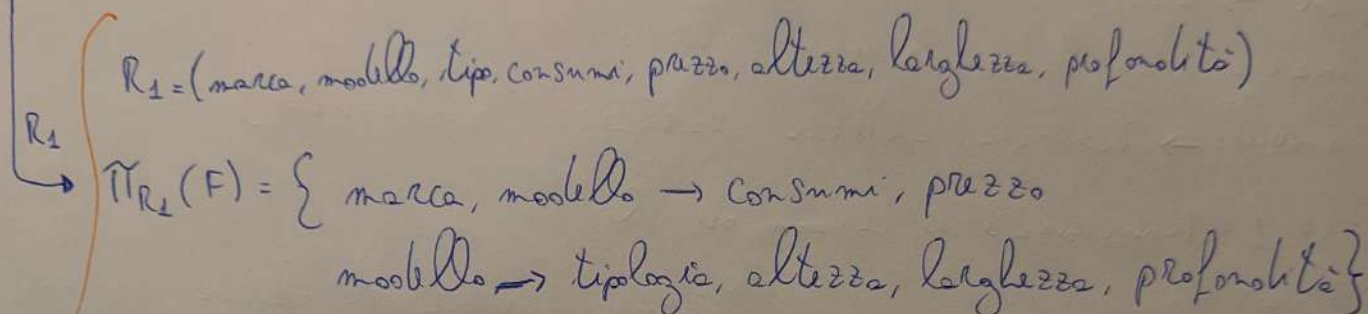 R₁ = (marca, modello, tipo, consumi, prezzo, altezza, larghezza, profondità)
R₁
π_R₁(F) = { marca, modello → consumi, prezzo
modello → tipologia, altezza, larghezza, profondità}